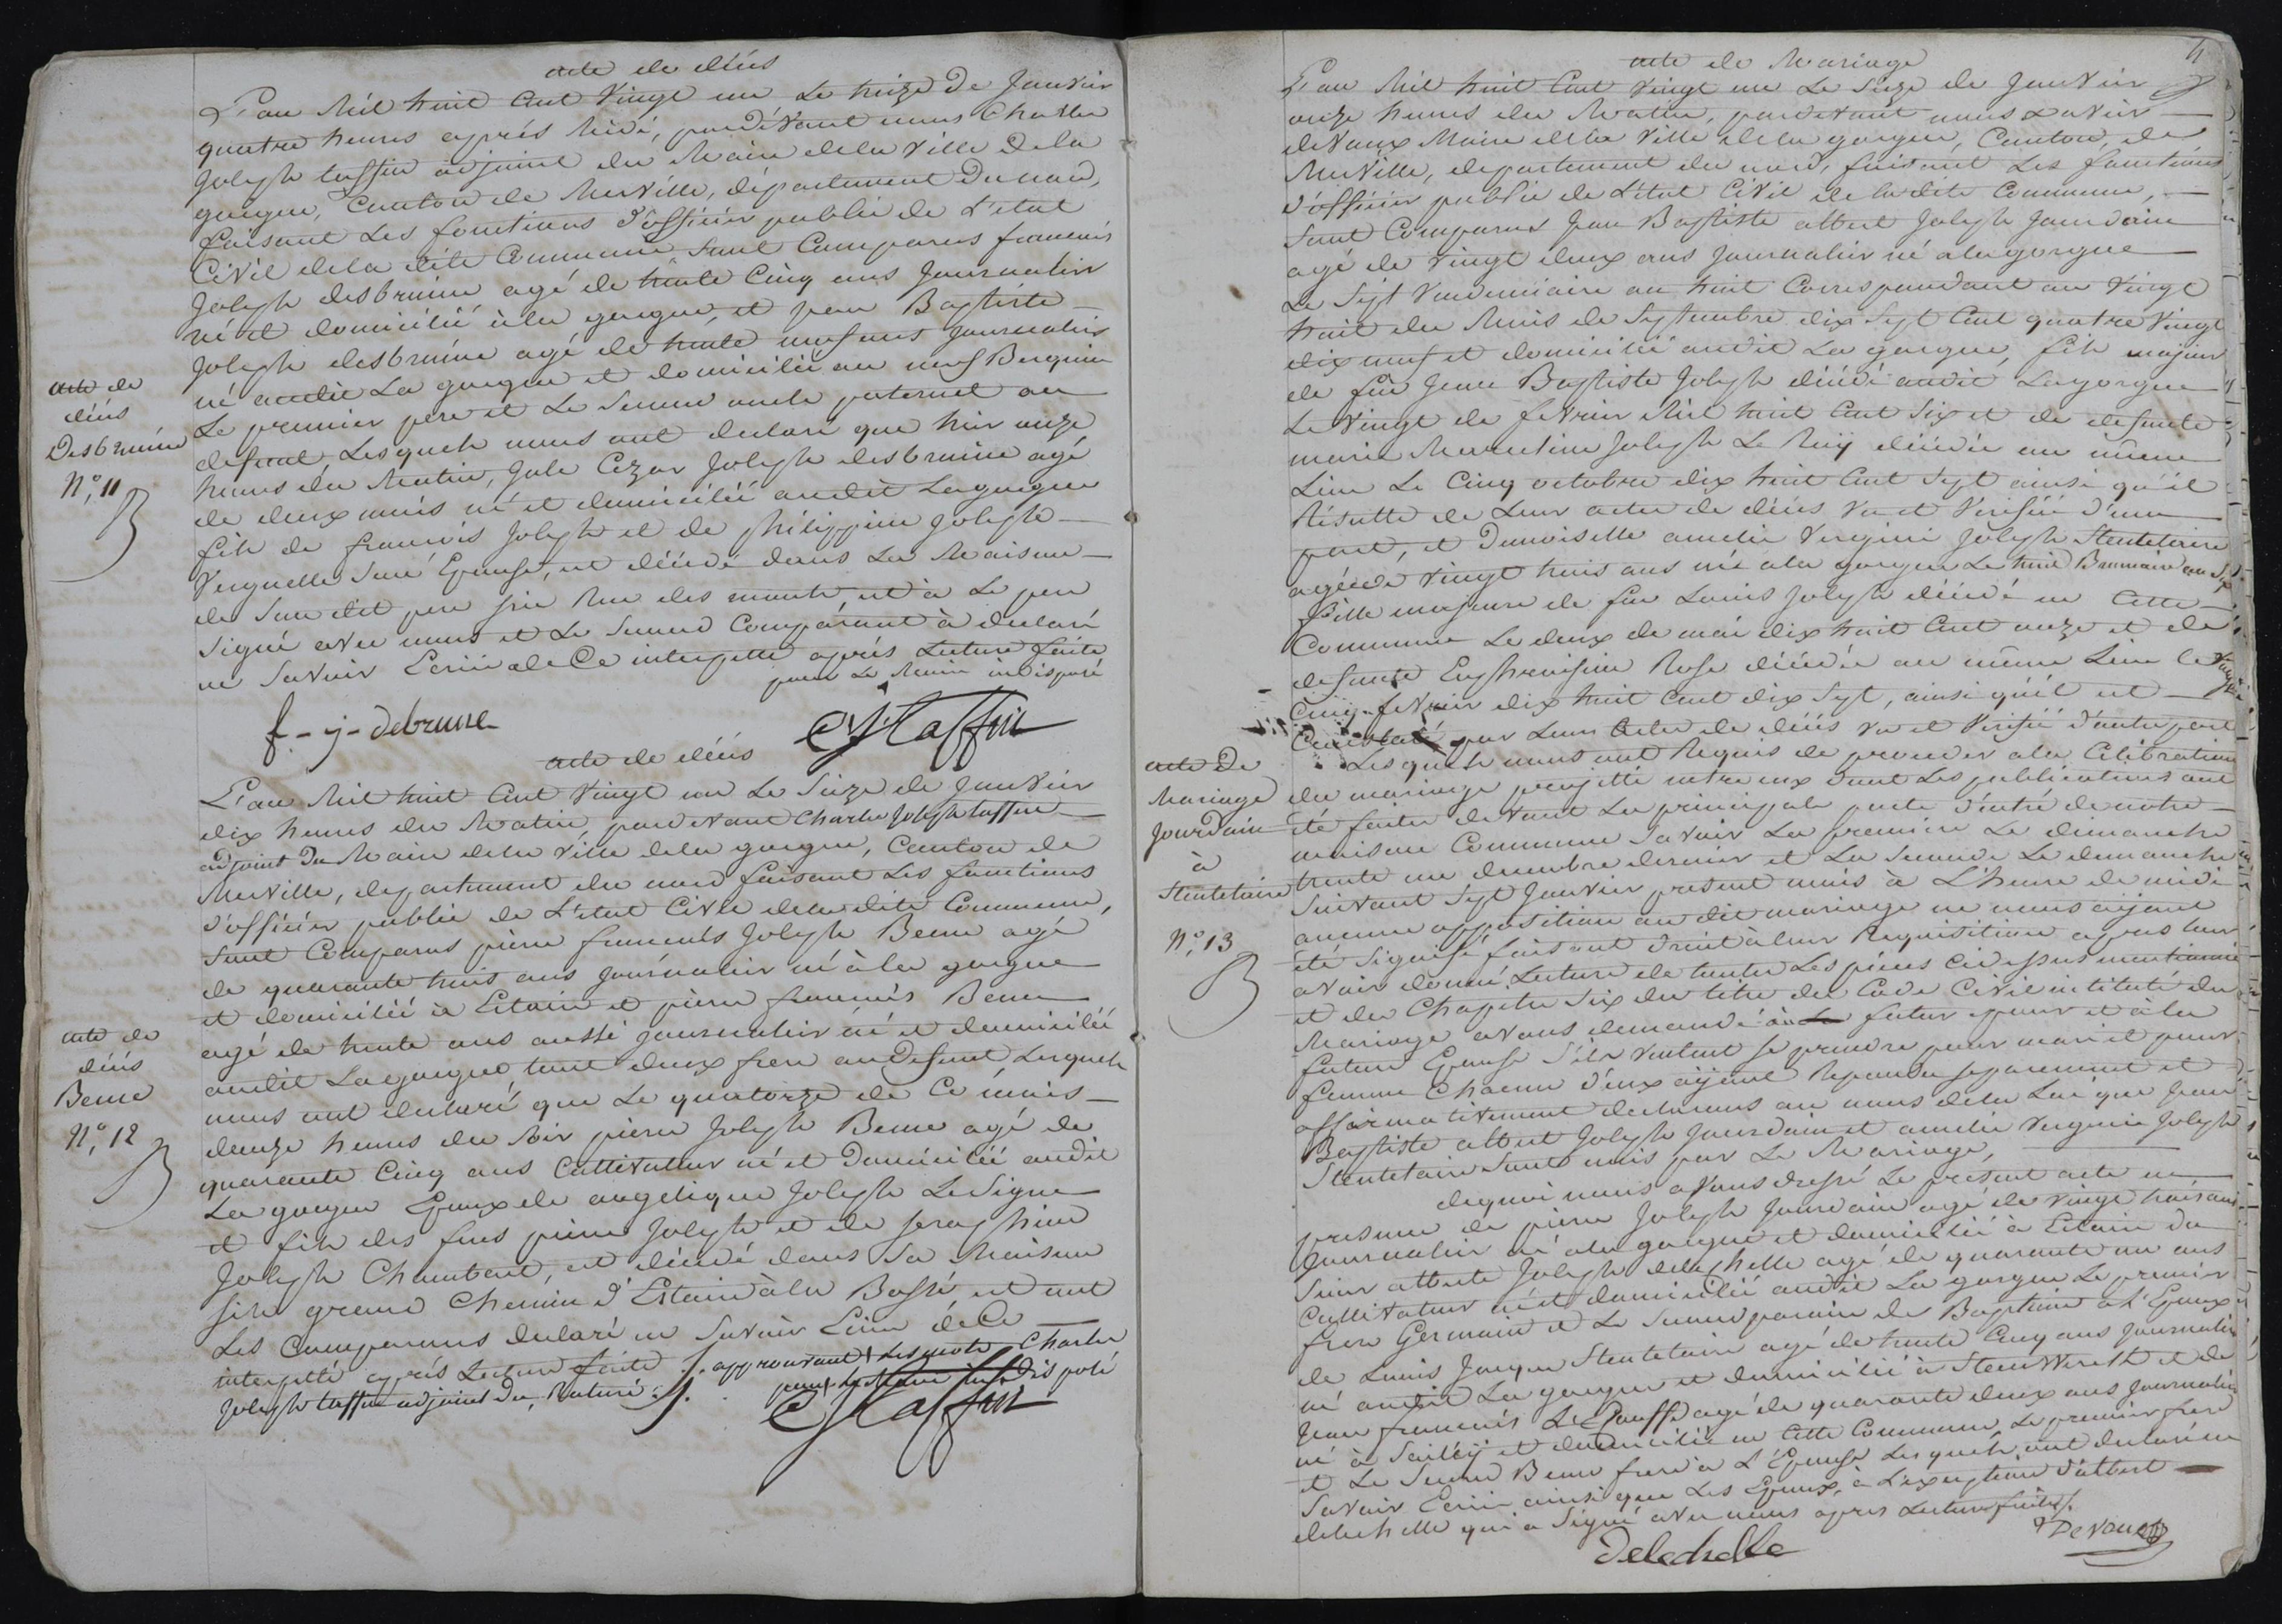 acte de décés
L'an Mil huit Cent Vingt un Le treize de Janvier
quatre heures aprés Midi, pardevant nous Charles
Joseph taffin adjoint du Maire dela Ville dela
gorgue, Canton de Merville, département Du nord,
faisant Les fonctions d'officier public de L'etat
Civil dela dite Commune Sont Comparus francois
Joseph desbruine agé de trente Cinq ans Journalier
né et domicilié àla gorgue, et jean Baptiste
Joseph desbruine agé de trente neuf ans Journalier
né audit La gorgue et domicilié au neuf Berquin
Le premier pere et Le Second oncle paternel au
defunt, Lesquels nous ont declaré que hier onze
heures du Matin, Jule Cezar Joseph desbruine agé
de deux mois né et domicilié audit Lagorgue
fils de francois Joseph et de philippine Joseph
Verquelle Son Epouse, est décédé dans La Maison
de Son dit pere Sise Rue des monts, et à Le pere
Signé avec nous et Le Second Comparant à declaré
ne Savoir Ecrire de Ce interpellé aprés Lecture faite
pour Le Maire indisposé
f - j - debrune
C J Taffin
acte de
décés
Desbruine
N.° 11
acte de décés
L'an Mil huit Cent Vingt un Le Seize de Janvier
dix heures du Matin, pardevant Charles Joseph taffin
adjoint Du Maire dela Ville dela gorgue, Canton de
Merville, departement du nord faisant Les fonctions
d'officier public de L'etat Civil dela dite Commune,
Sont Comparus pierre francois Joseph Beme agé
de quarante trois ans Journalier né à la gorgue
et domicilié à Estaire et pierre francois Beme
agé de trente ans aussi Journalier né et domicilié
audit Lagorgue tout deux frere au Defunt, Lesquels
nous ont declaré que Le quatorze de Ce mois
douze heures du Soir pierre Joseph Beme agé de
quarante Cinq ans Cultivateur né et Domicilié audit
La gorgue Epoux de angelique Joseph LeSigne
et fils des feus pierre Joseph et de Seraphine
Joseph Chombart, est décédé dans Sa Maison
Sise grand Chemin d'Estaire à la Bassé, et ont
Les Comparans declaré ne Savoir Ecrire de Ce
interpellé aprés Lecture faite ./. approuvant Les mots Charles
Joseph taffin adjoint Du, Raturé ./.
pour Le Maire indisposé
C J Taffin
acte de
décés
Beme
N.° 12
acte de Mariage
L'an Mil huit Cent Vingt un Le Seize de Janvier
onze heures du Matin, pardevant nous Xavier
deVaux Maire dela Ville dela gorgue, Canton, de
Merville, departement du nord, faisant Les fonctions
d'officier public de L'etat Civil de ladite Commune,
Sont Comparus Jean Baptiste albert Joseph Jourdain
agé de Vingt deux ans Journalier né a lagorgue
Le Sept Vendemiaire an huit Correspondant au Vingt
huit du Mois de Septembre dix Sept Cent quatre Vingt
dix neuf et domicilié audit La gorgue, fils majeur
de feu Jean Baptiste Joseph décédé audit Lagorgue
Le Vingt de fevrier Mil huit Cent Six et de defunte
marie Martine Joseph Le Ruy décédée au même
Lieu Le Cinq octobre dix huit Cent Sept ainsi qu'il
Résulte de Leur actes de décés Vu et Vérifiée d'une
part, et Demoiselle amelie Verginie Joseph Stentelaire
agée de Vingt trois ans née a la gorgue Le trois Brumaire an Sept
fille majeure de feu Louis Joseph décédé en Cette
Commune Le deux de mai dix huit Cent onze et de
defunte Euphroisine Rose décédée au même Lieu Le Vingt
Cinq fevrier dix huit Cent dix Sept, ainsi qu'il est
Constaté par Leur actes de décés vu et Vérifiée d'autre part
Lesquels nous ont Requis de proceder a la Célébration
du mariage projetté entre eux dont Les publications ont
été faites devant La principale porte d'entré de notre
maison Commune Savoir La premiere Le dimanche
trente un decembre dernier et La Seconde Le dimanche
Suivant Sept Janvier present mois à L'heure de midi
aucune opposition au dit mariage ne nous aijant
été Signifié faisant droit à leur Requisition apres leur
avoir donné Lecture de toutes Les pièces cidessus mentionnée
et du Chapitre Six du titre du Code Civil intitulé du
Mariage avons demandé au futur epoux et à la
future Epouse S'ils veulent se prendre pour mari et pour
femme Chacun d'eux aijant Repondu separement et
affirmativement declarons au nom dela Loi que Jean
Baptiste albert Joseph Jourdain et amelie Verginie Joseph
Stentelaire Sont unis par Le Mariage,
dequoi nous avons dressé Le present acte en
presence de pierre Joseph Jourdain agé de Vingt trois ans
Journalier né a la gorgue et domicilié à Estaire Du
Sieur alberte Joseph delechelle agé de quarante un ans
Cultivateur né et domicilié audit La gorgue Le premier
frere Germain et Le Second parain de Baptême a L'Epoux
de Louis Jacques Stentelaire agé de trente Cinq ans Journalier
né audit La gorgue et domicilié à Steenwerck et de
Jean francois Lepouffe agé de quarante deux ans Journalier
né à Sailly et domicilié en Cette Commune, Le premier frere
et Le Second Beau frere a L'Epouse Lesquels ont declaré ne
Savoir Ecrire ainsi que Les Epoux, à L'exception d'albert
delechelle qui a Signé avec nous apres Lecture faite ./.
Delechelle
Devaux
acte De
Mariage
Jourdain
à
Stentelaire
N.° 13